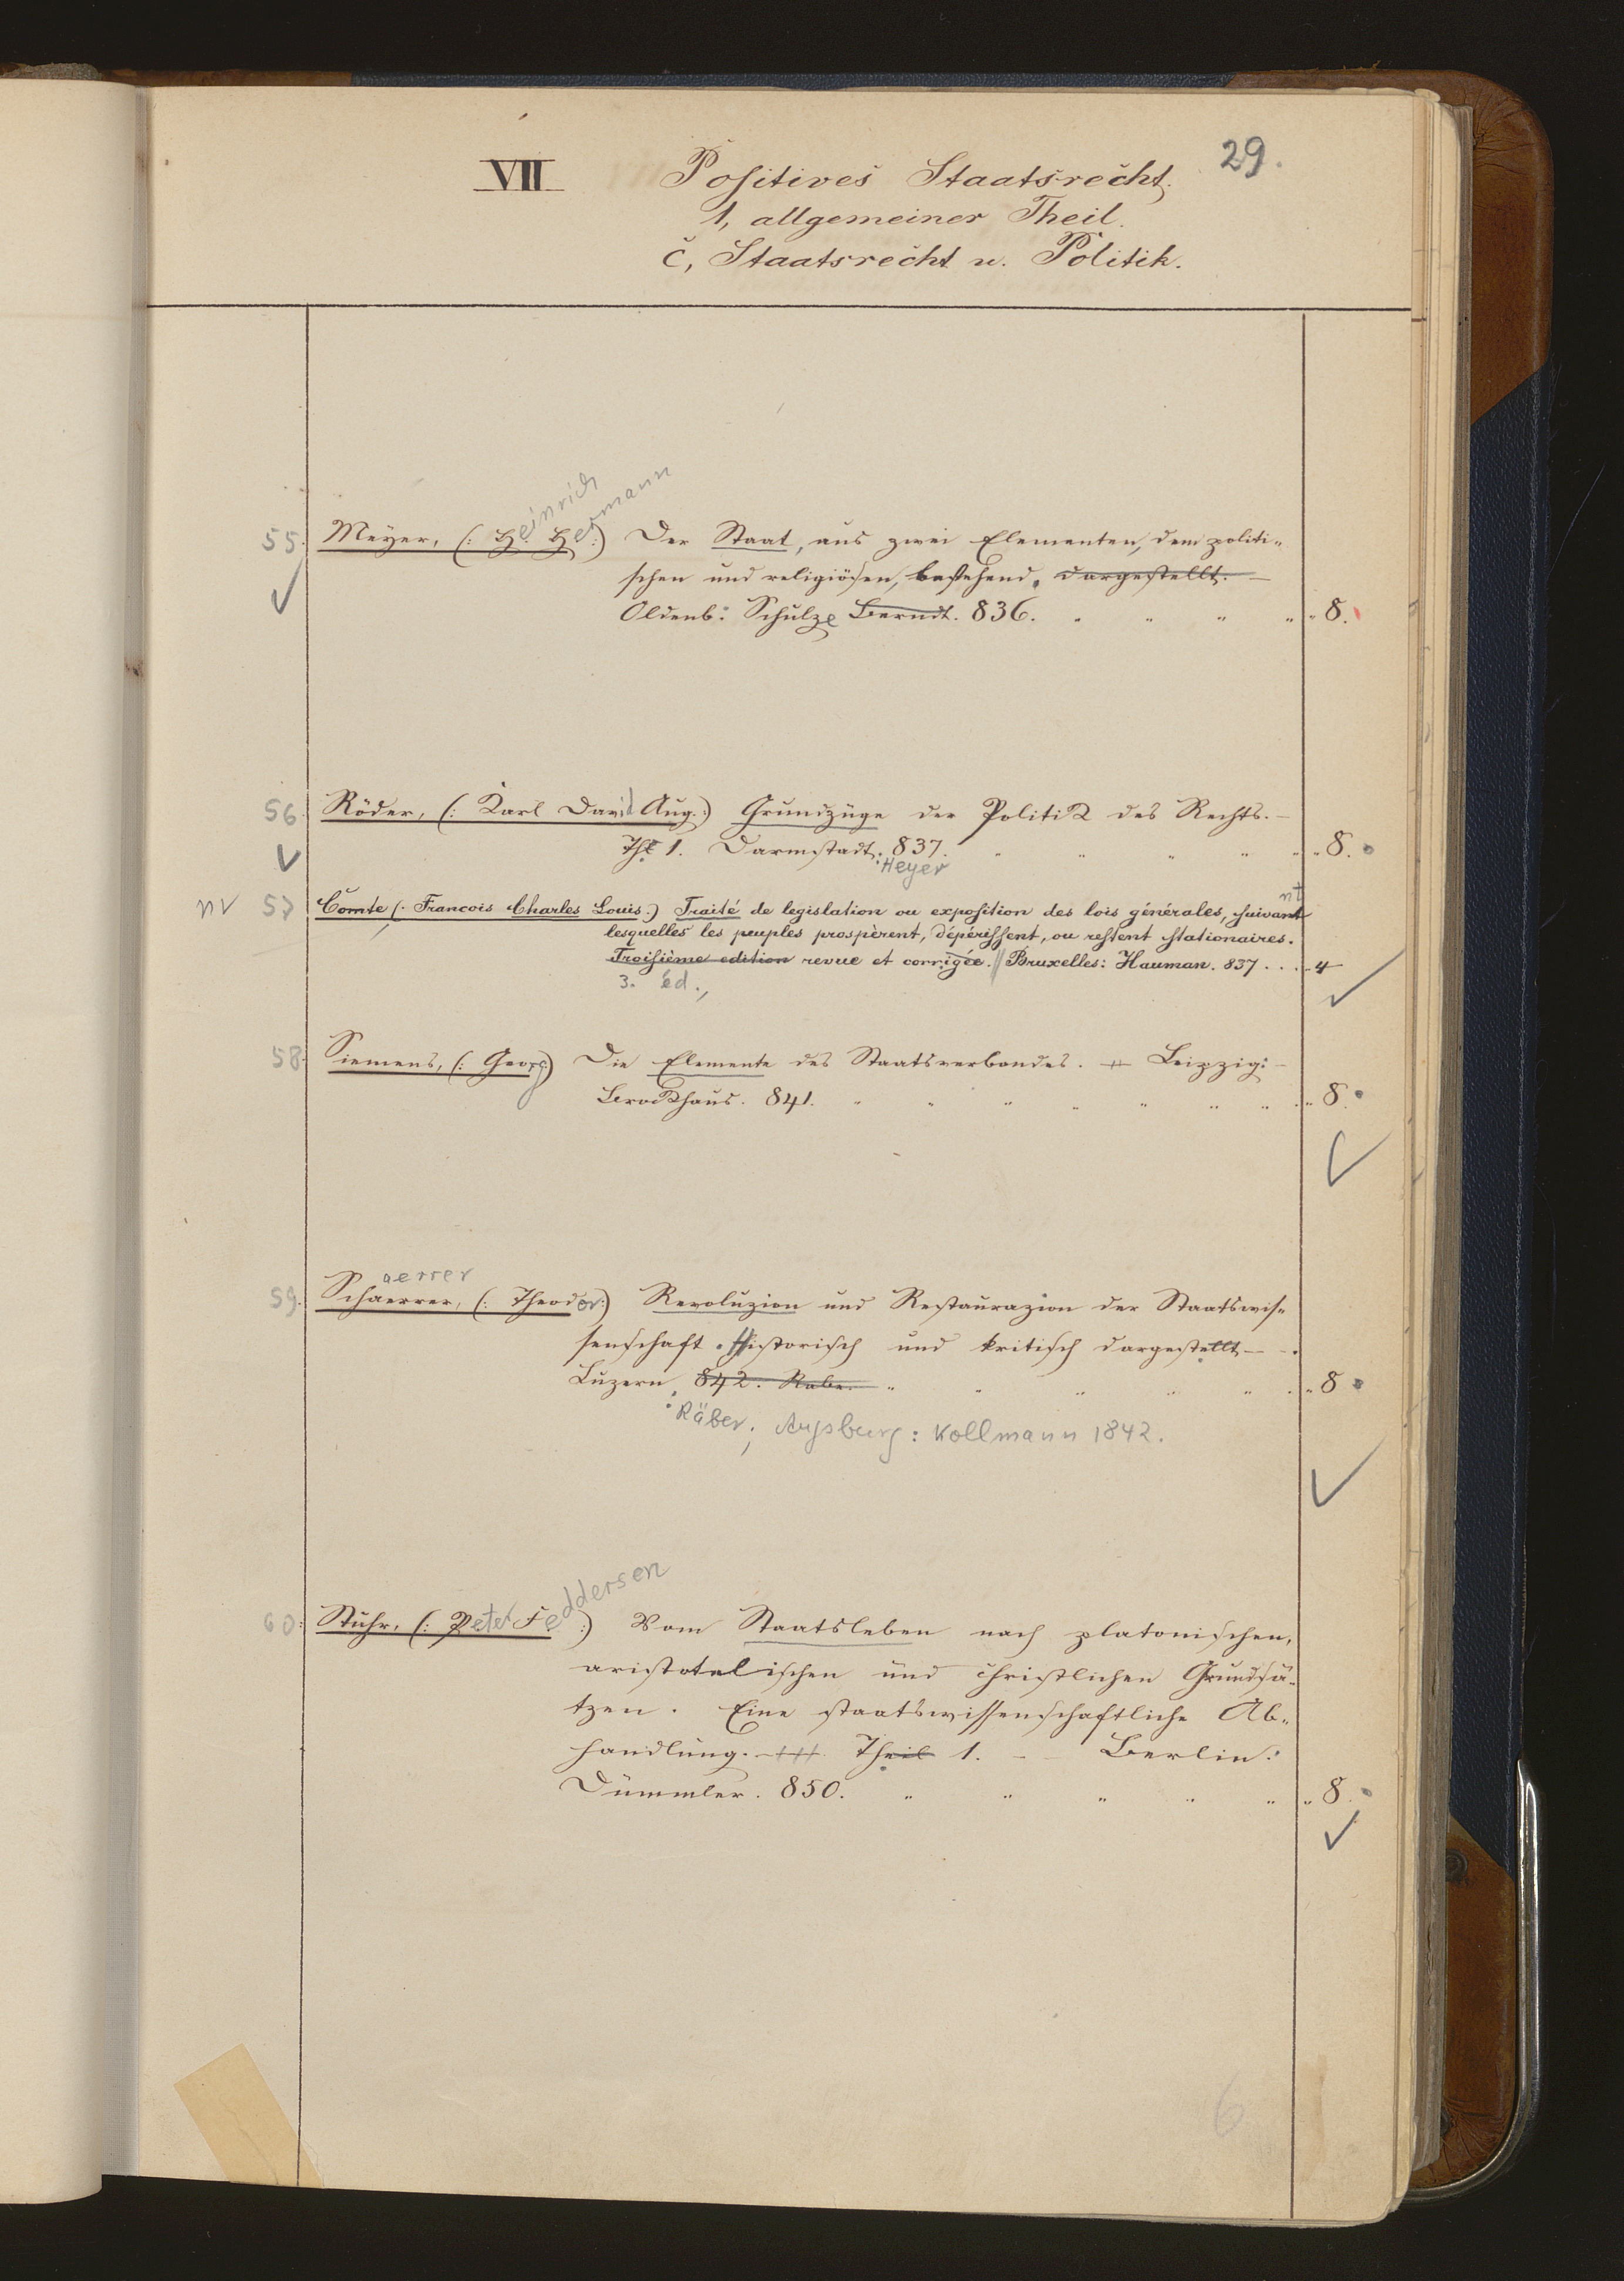 29.
VII Positives Staatsrecht.
1, allgemeiner Theil.
c, Staatsrecht u. Politik.
Heinrich Hermann
55. Meyer, (: H. H. :) Der Staat, aus zwei Elementen, dem politi-
schen und religiösen, bestehend, dargestellt. —
Oldenb: Schulze Berndt. 836. " " " " 8.
56. Röder, (: Karl David Aug. :) Grundzüge der Politik des Rechts. —
Thl 1. Darmstadt: 837. " " " " " 8.
: Heyer
nt
nv 57 Comte (: Francois Charles Louis :) Traité de legislation ou exposition des lois générales, suivant
lesquelles les peuples prospèrent, dépérissent, ou restent stationaires.
Troisième edition revue et corrigée. // Bruxelles: Hauman. 837 . . . 4
3. éd.,
58. Siemens, (: Georg :) Die Elemente des Staatsverbandes. — Leipzig: —
Brockhaus. 841. " " " " " " " 8.
aerrer
59. Schaerrer, (: Theodor :) Revoluzion und Restaurazion der Staatswis-
senschaft. Historisch und kritisch dargestellt —
Luzern, 842. Rabr. " " " " " 8
: Räber; Augsburg: Kollmann 1842.
60. Stuhr, (: Peter Feddersen :) Vom Staatsleben nach platonischen,
aristotelischen und christlichen Grundsä-
tzen. Eine staatswissenschaftliche Ab-
handlung. — Theil 1. — Berlin:
Dümmler. 850. " " " " " 8.
6